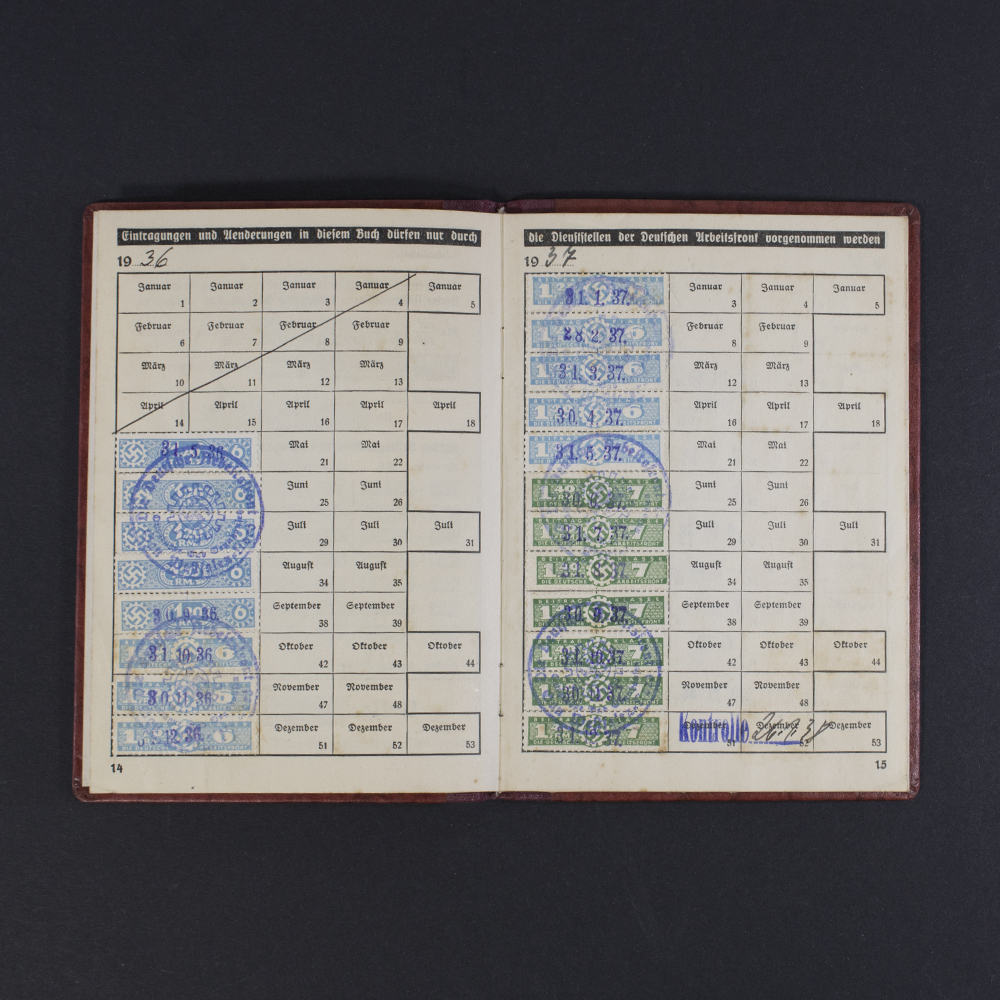 Eintragungen und Aenderungen in diesem Buch dürfen nur durch
1936
Januar 1 Januar 2 Januar 3 Januar 4 Januar 5
Februar 6 Februar 7 Februar 8 Februar 9
März 10 März 11 März 12 März 13
April 14 April 15 April 16 April 17 April 18
31.5.36 Mai 21 Mai 22
Juni 25 Juni 26
Juli 29 Juli 30 Juli 31
August 34 August 35
30.9.36. September 38 September 39
31.10.36 Oktober 42 Oktober 43 Oktober 44
30.11.36. November 47 November 48
12.36. Dezember 51 Dezember 52 Dezember 53
14
die Dienststellen der Deutschen Arbeitsfront vorgenommen werden
1937
31.1.37. Januar 3 Januar 4 Januar 5
28.2.37. Februar 8 Februar 9
31.3.37. März 12 März 13
30.4.37. April 16 April 17 April 18
31.5.37. Mai 21 Mai 22
30.6.37. Juni 25 Juni 26
31.7.37. Juli 29 Juli 30 Juli 31
31.8.37. August 34 August 35
30.9.37. September 38 September 39
31.10.37. Oktober 42 Oktober 43 Oktober 44
30.11.37. November 47 November 48
Dezember 51 Dezember 52 Dezember 53
Kontrolle
15